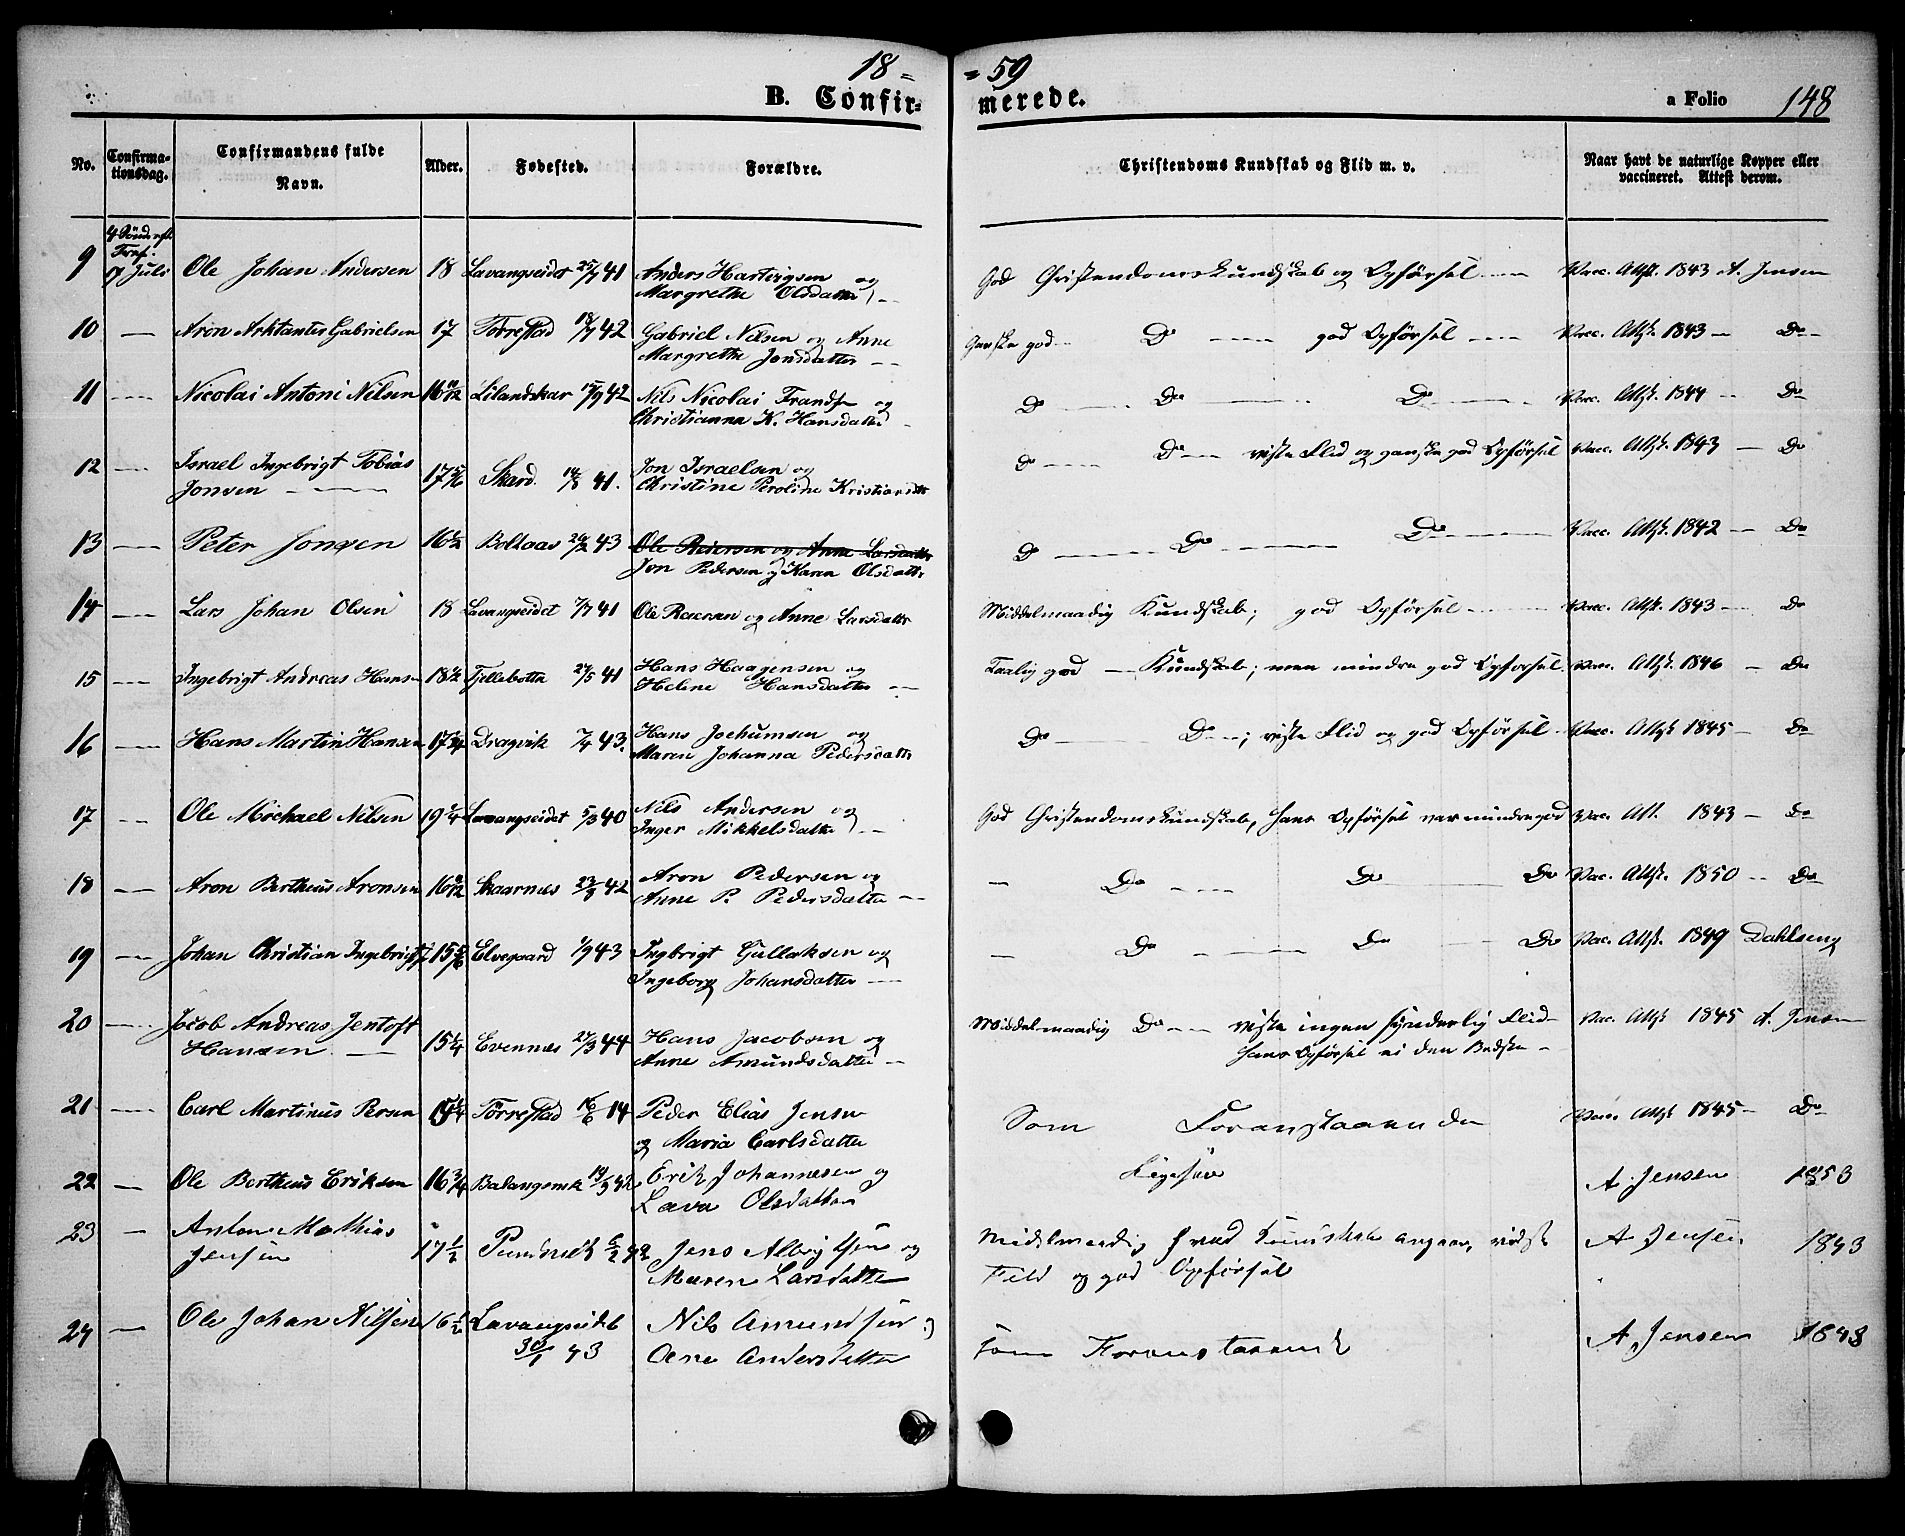 18 = = 59
B. Confir= merede. a Folio 148
No. Confirma-tionsdag. Confirmandens fulde Navn. Alder. Fødested. Forældre. Christendoms Kundskab og Flid m. v. Naar havt de naturlige Kopper eller vaccineret. Attest derom.
4 Sönd. eft. Tref.
9 17 Juli Ole Johan Andersen 18 Lavangseidet 25/7 41 Anders Hartvigsen og God Christendomskundskab og Opførsel Vacc. Attst. 1843 A. Jensen
Margrethe Olsdatter
10 — Aron Arktantes Gabrielsen 17 Törrestad 18/7 42 Gabriel Nilsen og Anne Ganske god Do god Opførsel Vacc. Attst. 1843 — Do
Margrethe Jonsdatter
11 — Nicolai Antoni Nilsen 16 10/12 Lilandskar 15/9 42 Nils Nicolai Frands. og Do Do Do Vacc. Attst. 1844 Do
Christianna K. Hansdatter
12 — Israel Ingebrigt Tobias Jon Israelsen og Do Do viste Flid og ganske god Opførsel Vacc. Attst. 1843 — Do
Jonsen 17 Skard 41. Christine Peroline Kristiansdtr
13 — Peter Jonsen 16 1/2 Boltaas 26/2 43 Ole Pedersen og Anne Larsdatter Do Do Do Vacc. Attst. 1842 — Do
Jon Pedersen og Karen Olsdatter
14 — Lars Johan Olsen 18 Lavangseidet 41 Ole Larsen og Anne Larsdatter Middelmaadig Kundskab; god Opførsel Vacc. Attst. 1843 — Do
15 — Ingebrigt Andreas Hansen 18 Fjellebotta 27/5 41 Hans Haagensen og Taalig god — Kundskab; men mindre god Opførsel Vacc. Attst. 1846 — Do
Helene Hansdatter
16 — Hans Martin Hansen 17 Dragvik 7/4 43. Hans Jochumsen og Do Do; viste Flid og god Opførsel Vacc. Attst 1845 — Do
Maren Johanna Pedersdatter
17 — Ole Michael Nilsen 19 1/4 Lavangseidet 5/3 40 Nils Andersen og God Christendomskundskab, hans Opførsel var mindre god Vac. Att. 1843 — Do
Inger Mikkelsdatter
18 — Aron Bertheus Aronsen 16 Skaarnes 23/8 42 Aron Pedersen og — Do Do Do Vac. Attst. 1850 — Do
Anne P. Pedersdatter
19 — Johan Christian Ingebrigts. 15 5/6 Elvegaard 1/9 43 Ingbrigt Gullaksen og — Do Do Do Vac. Attst. 1849 Dahlseng
Ingeborg Johansdatter
20 — Jacob Andreas Jentoft Middelmaadig Do viste ingen synderlig Flid Vac. Attst 1845 A. Jensen
Hansen 15 1/4 Evennes 27/3 44 Hans Jacobsen og hans Opførsel ei den Bedste
Anne Amundsdatter
21 — Carl Martinus Persen 15 1/4 Törrestad 16/6 14 Peder Elias Jensen Som Foranstaaende Vac. Attst 1845 — Do
og Maria Carlsdatter
22 — Ole Bertheus Eriksen 16 3/4 Balangsmk 19/9 42 Erik Johannesen og Ligesaa A. Jensen 1853
Lava Olsdatter
23 — Anton Mathias 17 1/2 42 Jens og Middelmaadig hvad Kundskab angaar, vidste A Jensen 1843
Jensen Maren Larsdatter Flid og god Opførsel
24 — Ole Johan Nilsen 16 1/2 Lavangseidet Nils Amundsen og som Foranstaaende A Jensen 1843
30/1 43 Oene Andersdatter